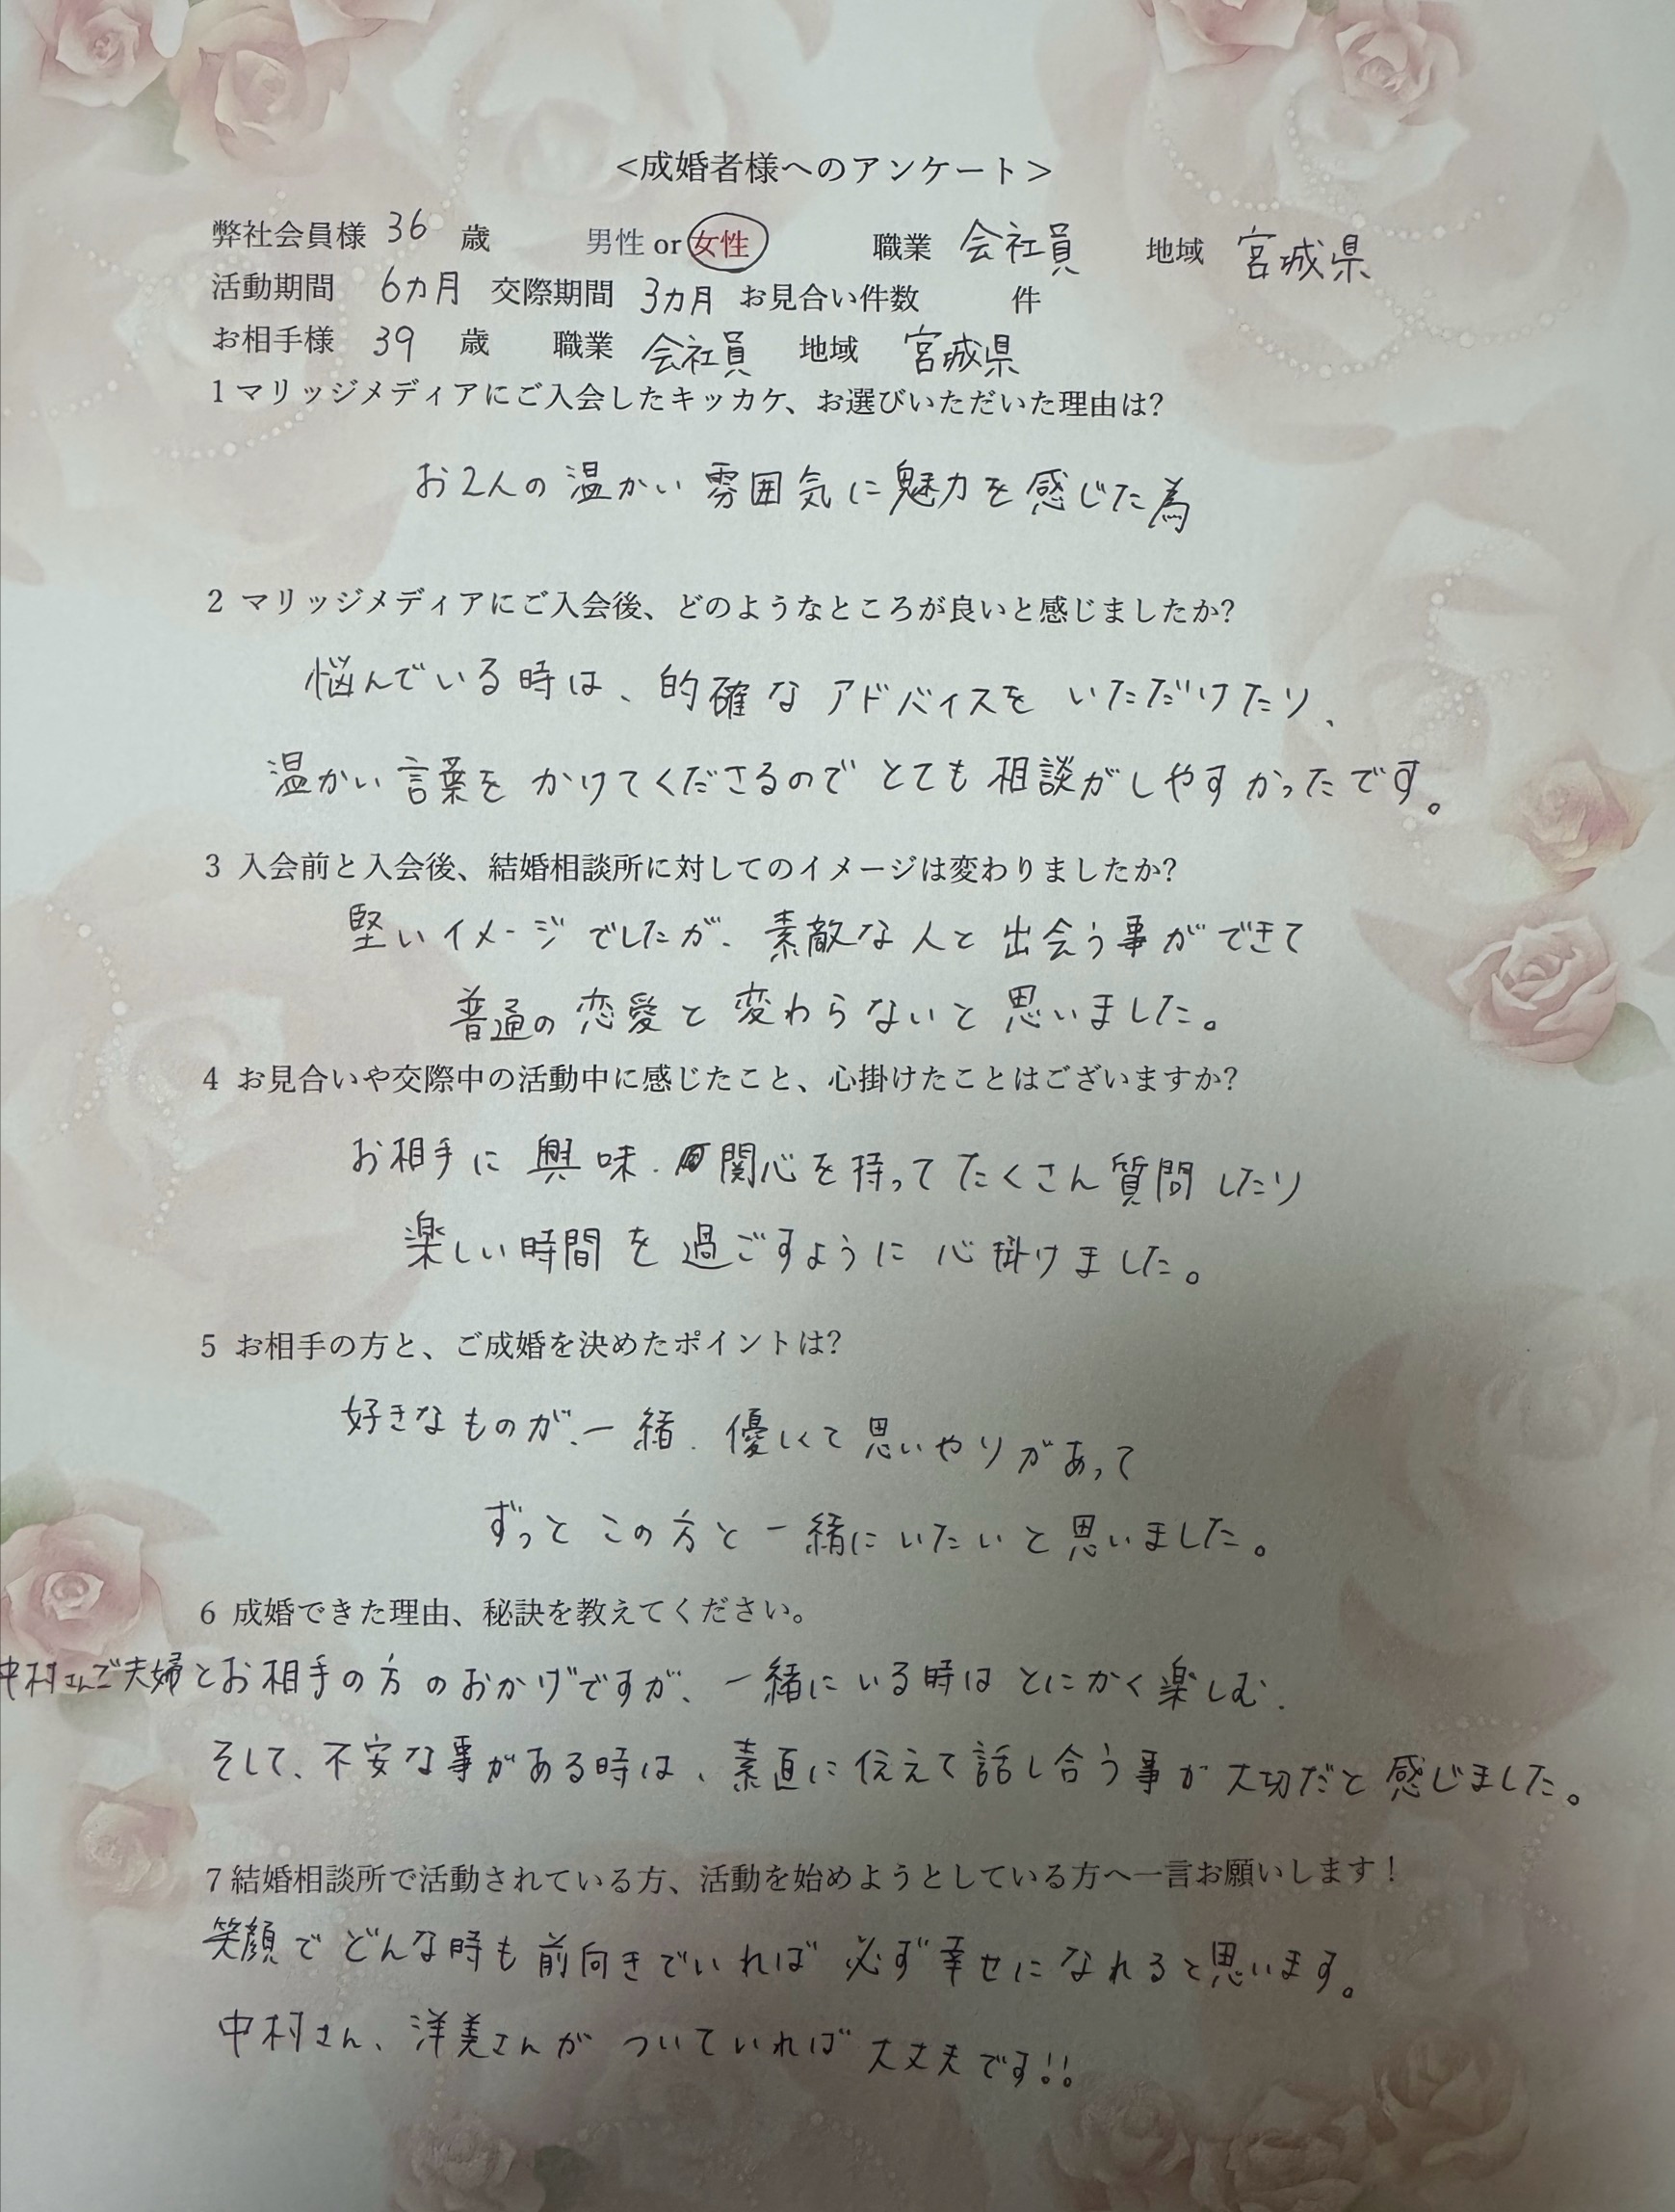 <成婚者様へのアンケート>
弊社会員様 36 歳 男性 or 女性 職業 会社員 地域 宮城県
活動期間 6カ月 交際期間 3カ月 お見合い件数 件
お相手様 39 歳 職業 会社員 地域 宮城県
1マリッジメディアにご入会したキッカケ、お選びいただいた理由は?
お2人の温かい雰囲気に魅力を感じた為
2 マリッジメディアにご入会後、どのようなところが良いと感じましたか?
悩んでいる時は、的確なアドバイスをいただけたり、
温かい言葉をかけてくださるのでとても相談がしやすかったです。
3 入会前と入会後、結婚相談所に対してのイメージは変わりましたか?
堅いイメージでしたが、素敵な人と出会う事ができて
普通の恋愛と変わらないと思いました。
4 お見合いや交際中の活動中に感じたこと、心掛けたことはございますか?
お相手に興味・関心を持ってたくさん質問したり
楽しい時間を過ごすように心掛けました。
5 お相手の方と、ご成婚を決めたポイントは?
好きなものが、一緒、優しくて思いやりがあって
ずっとこの方と一緒にいたいと思いました。
6 成婚できた理由、秘訣を教えてください。
中村さんご夫婦とお相手の方のおかげですが、一緒にいる時はとにかく楽しむ、
そして、不安な事がある時は、素直に伝えて話し合う事が大切だと感じました。
7結婚相談所で活動されている方、活動を始めようとしている方へ一言お願いします!
笑顔でどんな時も前向きでいれば必ず幸せになれると思います。
中村さん、洋美さんがついていれば大丈夫です!!